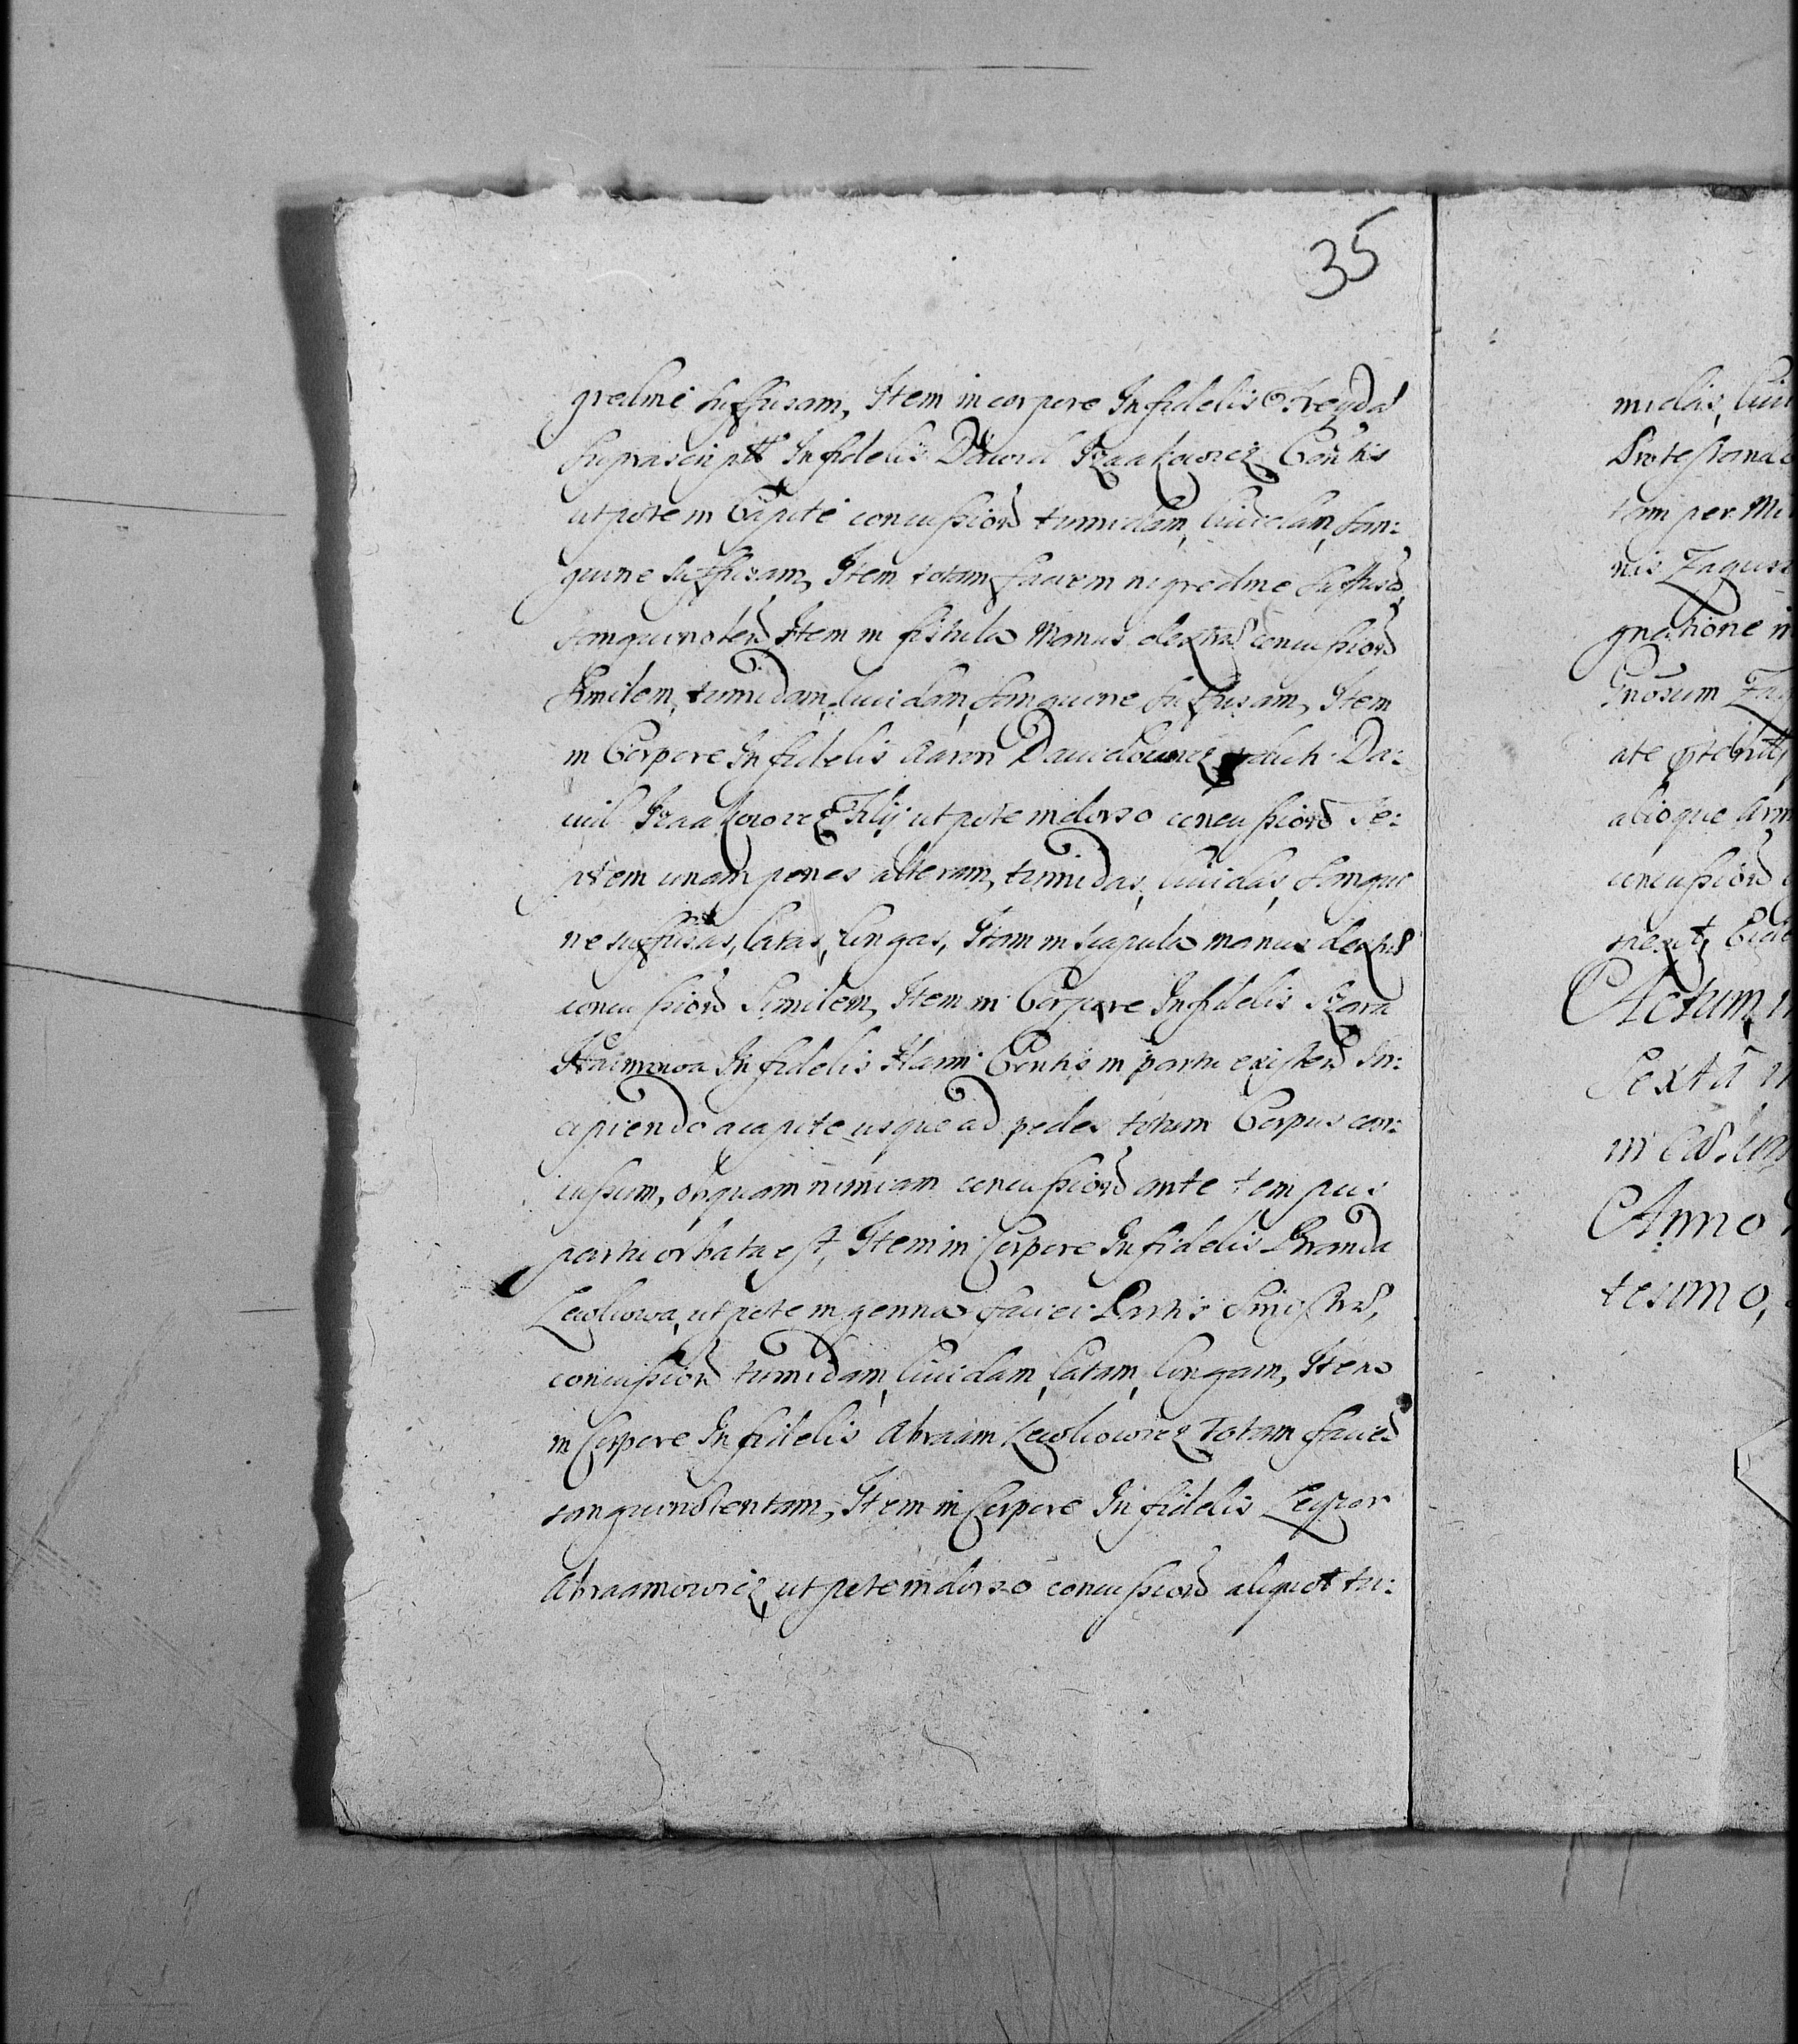 35
gredine suffusam, Item in corpore Infidelis Freyda
suprascriptti Infidelis Dawid Izaakowicz Contis
utpote in Capite concussionem tumidam, lividam, san:
guine suffusam, Item totam faciem nigredine suffusam,
sanguinolen Item in fistula manus dextrae concussionem
similem, tumidam, lividam, sanguine suffusam, Item
in Corpore Infidelis Aaron Dawidowicz Da:
wid Izaakowicz Filij utpote in dorso concussionem Se:
ptem unam penes alteram, tumidas, lividas, sangui
ne suffusas, latas, longas, Item in scapula manus dextrae
concussionem similem, Item in Corpore Infidelis Szora
Infidelis Contis in partu existen In:
cipiendo a capite usque ad pedes totum Corpus con:
cussum, ob quam nimiam concussionem ante tempus
partu orbata est, Item in Corpore Infidelis Branda
Lewkowa, utpote in genna faciei Partis Sinistrae,
concussionem tumidam, lividam, latam, longam, Item
in Corpore Infidelis Abraam Lewkowicz totam faciem
sanguinolentam, Item in Corpore Infidelis Leyzor
Abraamowicz, utpote in dorso concussionem aliquot tu:
midas, livi
Protestan
tam per Mi
nis Zagurs
gnatione in
Gnosum Za
ate
alioque Arm
concussionem
Actum, i
Sexta in
in
Anno
tesimo,